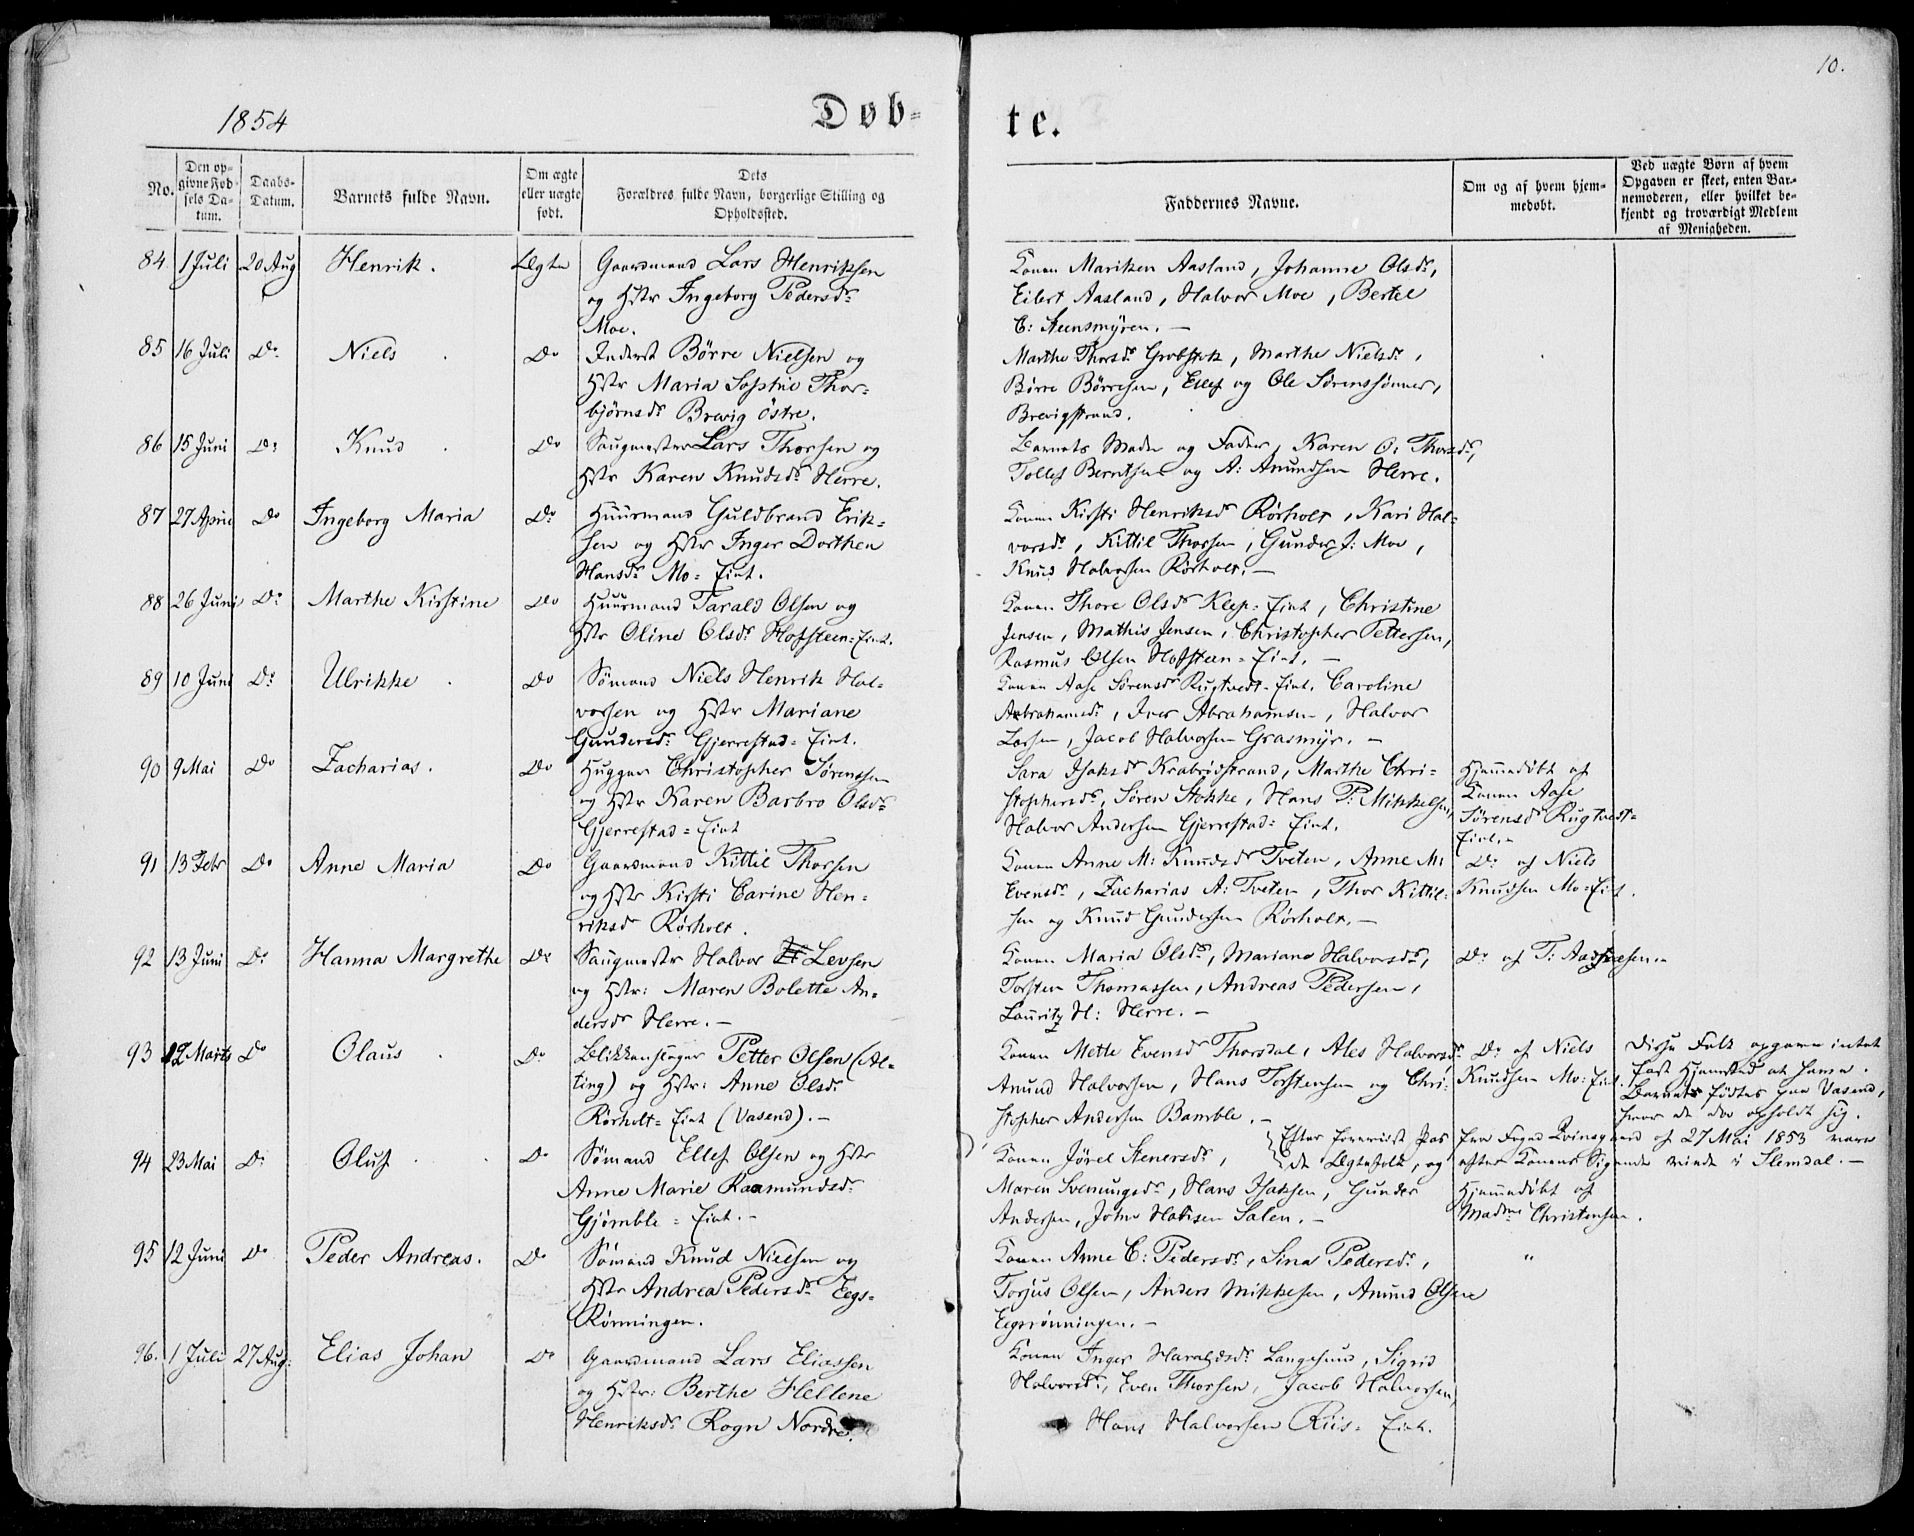 10.
1854
Døb-
te.
No.
Den op-
givne Fød-
sels Da-
tum.
Daabs-
Datum.
Barnets fulde Navn.
Om ægte
eller uægte
født.
Dets
Forældres fulde Navn, borgerlige Stilling og
Opholdssted.
Faddernes Navne.
Om og af hvem hjem-
medøbt.
Ved uægte Børn af hvem
Opgaven er skeet, enten Bar-
nemoderen, eller hvilket be-
kjendt og troværdigt Medlem
af Menigheden.
84 1 Juli 20 Aug Henrik. Ægte
Gaardmand Lars Henriksen
og Hstr Ingeborg Pedersdr
Moe.
Konen Mariken Aasland, Johanne Olsdr,
Eilert Aasland, Halvor Moe, Bertel
C: Steensmyren. —
85 16 Juli Do Niels . Do
Inderst Börre Nielsen og
Hstr Maria Sophie Thor-
björnsdr Brevig östre.
Marthe Thorsdr Grobstok, Marthe Nielsdr,
Börre Börresen, Ellef og Ole Sörenssönner,
Brevigstrand.
86 15 Juni Do Knud . Do
Saugmester Lars Thorsen og
Hstr Karen Knudsdr Herre.
Barnets Moder og Fader, Karen O: Thorsdr,
Tollef Berntsen og A: Amundsen Herre.
87 27 April Do Ingeborg Maria Do
Huusmand Guldbrand Erik-
sen og Hstr Inger Dorthea
Hansdr Mo= Eint.
Konen Kirsti Henriksdr Rörholt, Kari Hal-
vorsdr, Kittil Thorsen, Gunder J: Moe,
Knud Halvorsen Rörholt. —
88 26 Juni Do Marthe Kirstine Do
Huusmand Tarald Olsen og
Hstr Oline Olsdr Hafsteen=Eint.
Konen Thore Olsdr Klep=Eint, Christine
Jensen, Mathis Jensen, Christopher Pettersen,
Rasmus Olsen Hafsteen=Eint. —
89 10 Juni Do Ulrikke . Do
Sömand Niels Henrik Hal-
vorsen og Hstr Mariane
Gundersdr Gjerrestad=Eint.
Konen Aase Sörensdr Rugtvedt=Eint, Caroline
Abrahamsdr, Iver Abrahamsen, Halvor
Larsen, Jacob Halvorsen Grasmyr. —
90 9 Mai Do Zacharias. Do
Hugger Christopher Sörensen
og Hstr Karen Barbro Olsdr
Gjerrestad=Eint
Sara Isaksdr Krabrödstrand, Marthe Chri-
stophersdr, Sören Stokke, Hans P: Mikkelsen,
Halvor Andersen Gjerrestad=Eint.
Hjemmedöbt af
Konen Aase
Sörensd Rugtvedt=
Eint. —
91 13 Febr Do Anne Maria Do
Gaardmand Kittil Thorsen
og Hstr Kirsti Carine Hen-
riksdr Rörholt.
Konen Anne M: Knudsdr Tveten, Anne M:
Evensdr, Zacharias A: Tveten, Thor Kittil-
sen og Knud Gundersen Rörholt. —
Do af Niels
Knudsen Mo=Eint.
92 13 Juni Do Hanna Margrethe Do
Saugmester Halvor Levsen
og Hstr: Maren Bolette An-
dersdr Herre. —
Konen Maria Olsdr, Mariane Halvorsdr,
Torsten Thomassen, Andreas Pedersen,
Lauritz H: Herre. —
Do af T:
93 12 Marts Do Olaus . Do
Blikkenslager Petter Olsen (Al-
ting) og Hstr: Anne Olsdr
Rörholt=Eint (Vasend). —
Konen Mette Evensd Thorsdal, Ales Halvorsdr
Amund Halvorsen, Hans Torstensen og Chri-
stopher Andersen Bamble. —
Do af Niels
Knudsen Mo=Eint.
Disse Folk opgave intet
fast Hjemsted at have.
Barnet födtes paa Vasend,
hvor de da opholdt sig.
Efter foreviist Pas fra Foged Qvinsgaard af 27 Mai 1853 vare
de Ægtefolk, og efter Konens Sigende viede i Slemdal. —
94 23 Mai Do Oluf . . Do
Sömand Ellef Olsen og Hstr
Anne Marie Raamundsdr
Gjömble=Eint. —
Konen Jörel Stenersdr,
Maren Sveningsdr, Hans Isaksen, Gunder
Andersen, John Halvsen Salen. —
Hjemmedöbt af
Madme Christensen.
95 12 Juni Do Peder Andreas. Do
Sömand Knud Nielsen og
Hstr Andrea Pedersdr Eegs-
Rönningen.
Konen Anne C: Pedersdr, Sina Pedersdr,
Torjus Olsen, Anders Mikkelsen, Amund Olsen
Eegsrönningen. —
"
96. 1 Juli 27 Aug: Elias Johan Do
Gaardmand Lars Eliassen
og Hstr: Berthe Hellene
Henriksdr Rogn Nordre.
Konen Inger Haraldsdr Langesund, Sigrid
Halvorsdr, Even Thorsen, Jacob Halvorsen,
Hans Halvorsen Riis=Eint.